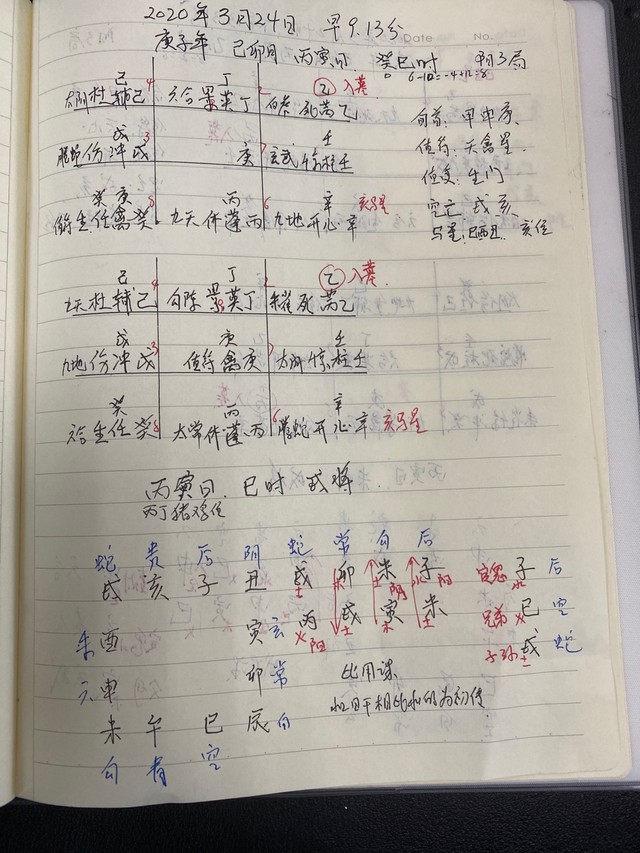 2020年3月24日 早9.13分
Date No.
庚子年 己卯月 丙寅日 癸巳时 阳3局
0 6-10=-4+12=8
己4 丁 乙入墓
太阴杜辅己 六合景英丁 白虎死芮乙
戊3 7壬
腾蛇伤冲戊 庚 玄武惊柱壬
癸庚8 丙 6辛 亥马星
值符生任禽癸 九天休蓬丙 九地开心辛
旬首:甲申庚
值符:天禽星
值使:生门
空亡 戌亥
马星:巳酉丑 亥位
己4 丁 2乙入墓
九天杜辅己 勾陈景英丁 朱雀死芮乙
戊3 庚 7壬
九地伤冲戊 值符禽庚 太阴惊柱壬
癸8 丙 6辛
六合生任癸 太常休蓬丙 腾蛇开心辛 亥马星
丙寅日 巳时 戌将
丙丁猪鸡位
蛇 贵 后 阴 蛇 常 勾 后
戌 亥 子 丑 戌土 卯 未 子 官鬼子水后
朱酉 寅玄 丙火阳 戌 寅 未 兄弟巳火空
六申 卯常 子孙戌土蛇
未 午 巳 辰白
勾 青 空
比用课
和日干相比和的为初传